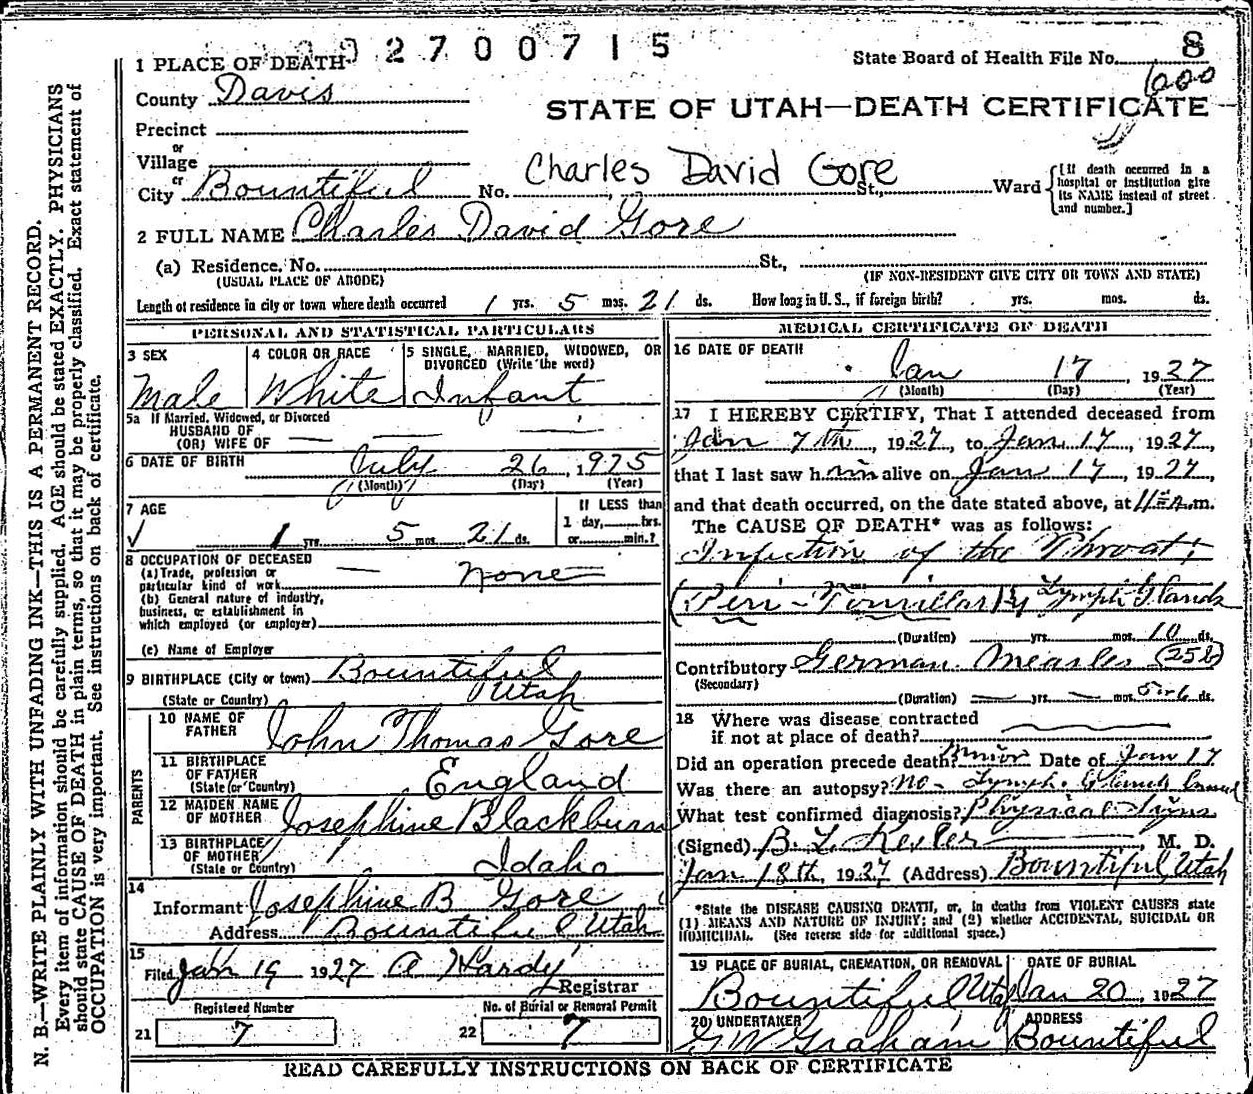 2700715
8
1 PLACE OF DEATH
State Board of Health File No.
County Davis
1000
STATE OF UTAH—DEATH CERTIFICATE
Precinct
or
Village
or
City Bountiful No. Charles David Gore St., Ward
[If death occurred in a hospital or institution give its NAME instead of street and number.]
2 FULL NAME Charles David Gore
(a) Residence, No. St.,
(USUAL PLACE OF ABODE) (IF NON-RESIDENT GIVE CITY OR TOWN AND STATE)
Length of residence in city or town where death occurred 1 yrs. 5 mos. 21 ds. How long in U. S., if foreign birth? yrs. mos. ds.
PERSONAL AND STATISTICAL PARTICULARS
3 SEX Male
4 COLOR OR RACE White
5 SINGLE, MARRIED, WIDOWED, OR DIVORCED (Write the word) Infant
5a If Married, Widowed, or Divorced
HUSBAND OF
(OR) WIFE OF
6 DATE OF BIRTH July 26, 1925
(Month) (Day) (Year)
7 AGE
1 yrs. 5 mos. 21 ds.
If LESS than
1 day, hrs.
or min.?
8 OCCUPATION OF DECEASED
(a) Trade, profession or
particular kind of work None
(b) General nature of industry,
business, or establishment in
which employed (or employer)
(c) Name of Employer
9 BIRTHPLACE (City or town) Bountiful
(State or Country) Utah
PARENTS
10 NAME OF FATHER John Thomas Gore
11 BIRTHPLACE OF FATHER (State or Country) England
12 MAIDEN NAME OF MOTHER Josephine Blackburn
13 BIRTHPLACE OF MOTHER (State or Country) Idaho
14
Informant Josephine B Gore
Address Bountiful Utah
15
Filed Jan 19 1927 A Hardy
Registrar
Registered Number
21 7
No. of Burial or Removal Permit
22 7
MEDICAL CERTIFICATE OF DEATH
16 DATE OF DEATH
Jan 17, 1927
(Month) (Day) (Year)
17 I HEREBY CERTIFY, That I attended deceased from
Jan 7th, 1927, to Jan 17, 1927,
that I last saw him alive on Jan 17, 1927,
and that death occurred, on the date stated above, at m.
The CAUSE OF DEATH* was as follows:
Infection of the Throat,
(Peri-Tonsillar) Lymph Glands
(Duration) yrs. mos. 10 ds.
Contributory German Measles (25b)
(Secondary)
(Duration) yrs. mos. 5 or 6 ds.
18 Where was disease contracted
if not at place of death?
Did an operation precede death? Minor Date of Jan 17
Was there an autopsy? No - Lymph. Glands lanced
What test confirmed diagnosis? Physical Signs
(Signed) B. L. Kesler, M. D.
Jan 18th, 1927 (Address) Bountiful, Utah
*State the DISEASE CAUSING DEATH, or, in deaths from VIOLENT CAUSES state
(1) MEANS AND NATURE OF INJURY; and (2) whether ACCIDENTAL, SUICIDAL OR
HOMICIDAL. (See reverse side for additional space.)
19 PLACE OF BURIAL, CREMATION, OR REMOVAL DATE OF BURIAL
Bountiful Utah Jan 20, 1927
20 UNDERTAKER ADDRESS
G W Graham Bountiful
READ CAREFULLY INSTRUCTIONS ON BACK OF CERTIFICATE
N. B.—WRITE PLAINLY WITH UNFADING INK—THIS IS A PERMANENT RECORD.
Every item of information should be carefully supplied. AGE should be stated EXACTLY. PHYSICIANS
should state CAUSE OF DEATH in plain terms, so that it may be properly classified. Exact statement of
OCCUPATION is very important. See instructions on back of certificate.